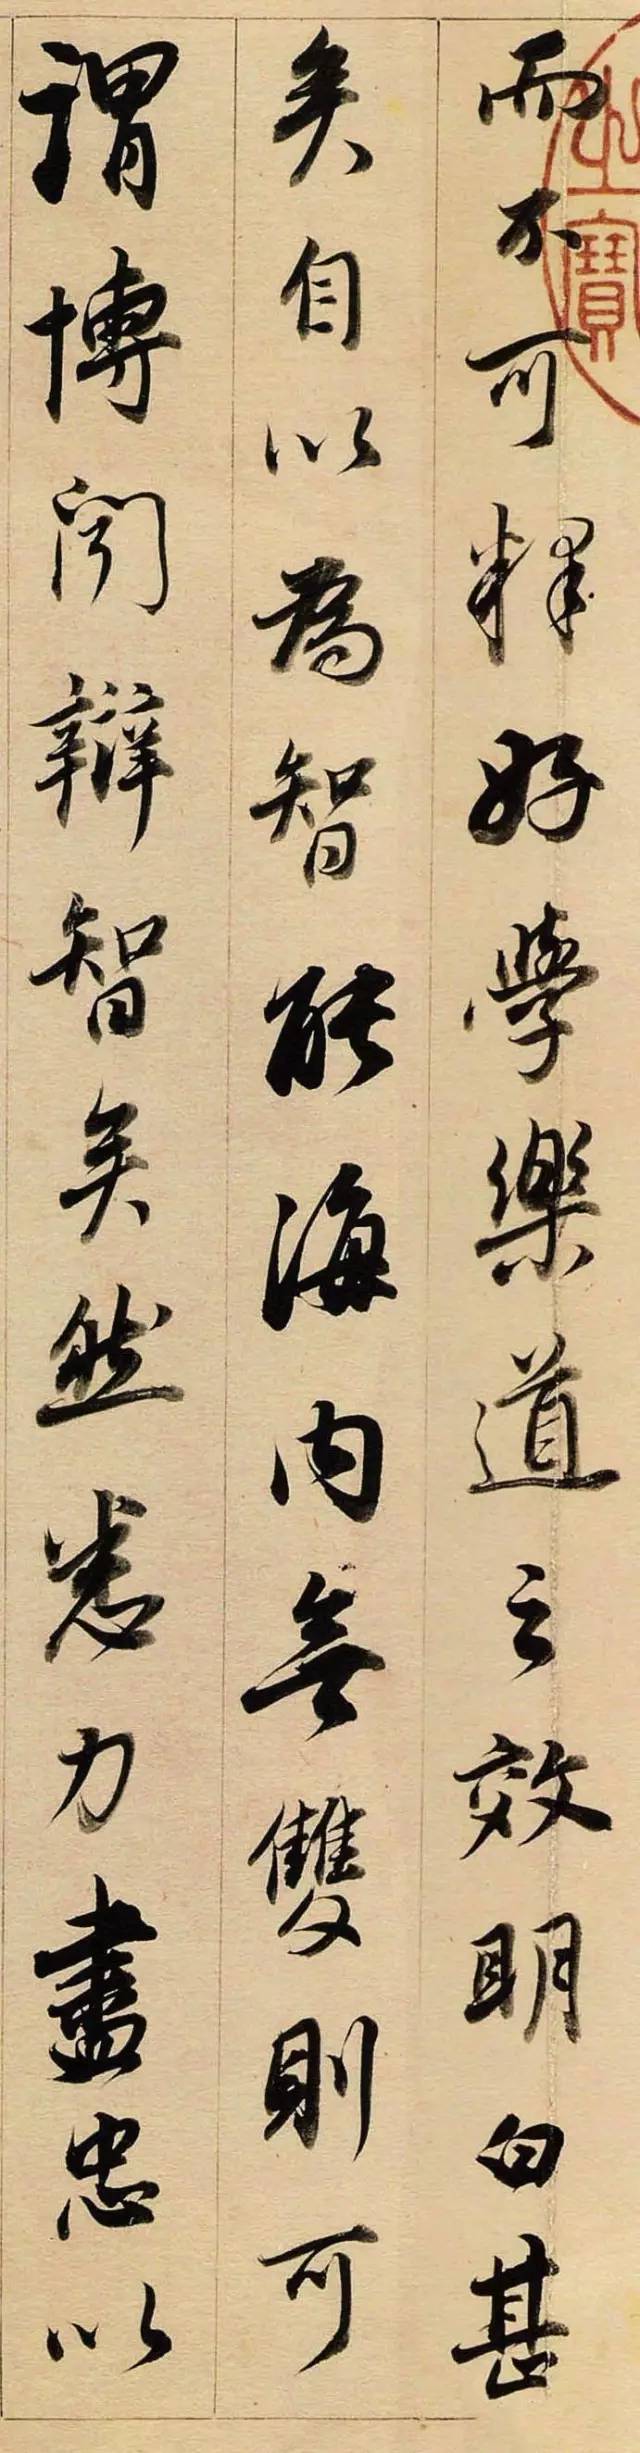 而不可釋好學樂道之效明白甚
矣自以為智能海內無雙則可
謂博聞辯智矣然悉力盡忠以
寶